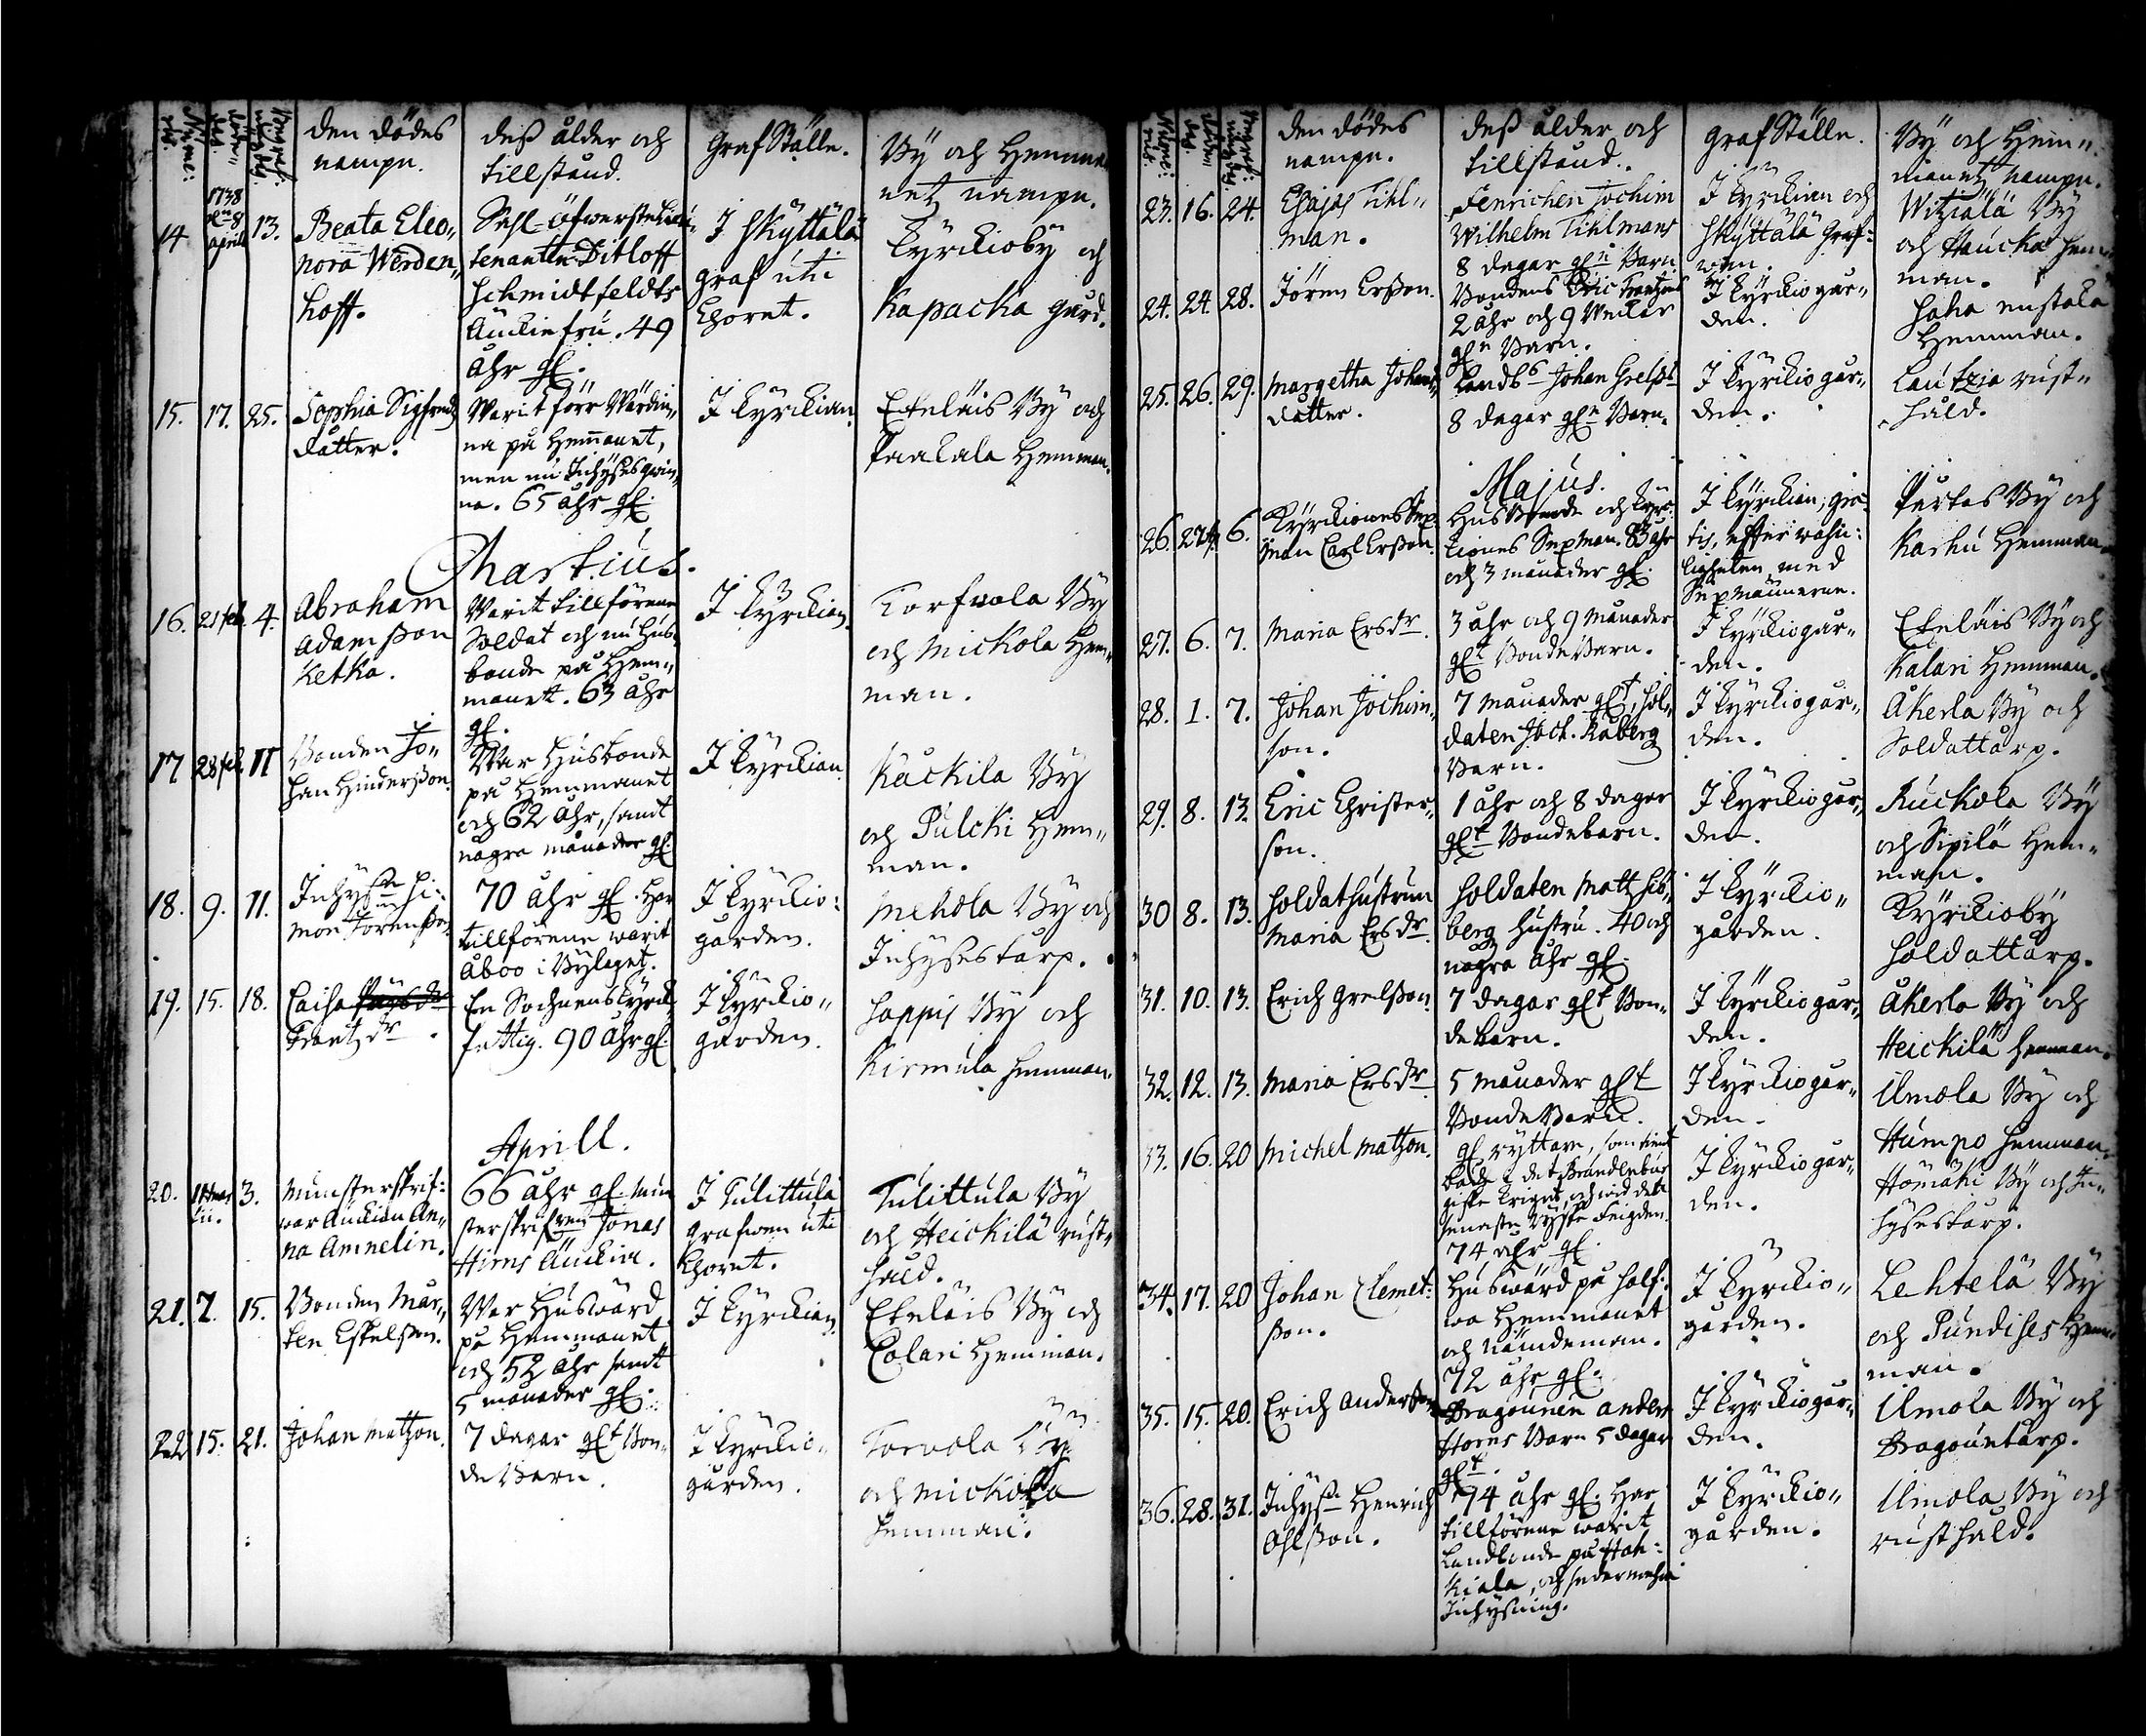 den dödes
nampn.
deß ålder och
tillstånd.
Graf Ställe.
By och Hemma
netz nampn.
14
1738
8
Aprill
13.
Beata Eleo„
nora Werden„
hoff.
Sahl. Öfwersteleu„
tenanten Ditloff
Schmidtfeldts
Änckiefru. 49
åhr gl.
I Skyttälä
graf uti
Choret.
Kyrckioby och
Kapacka gård.
15.
17.
25.
Sophia Sigfreds
dåtter.
Warit förr Wärdin„
na på Hemanet,
men nu Inhyses qwin„
na. 65 åhr gl.
I Kyrckian
Eteläis By och
Paakala Hemman.
Martius.
16.
21 feb.
4.
Abraham
Adamsson
Ketka.
Warit tillförene
Soldat och nu Hus„
bonde på Hem„
manet. 63 åhr
gl.
I Kyrckian.
Torfwola By
och Mickola Hem„
man.
17
28 feb.
11
Bonden Jo„
han Hindersson.
War Husbonde
på Hemmanet
och 62 åhr, samt
några månader gl.
I Kyrckian.
Kackila By
och Pulcki Hem„
man.
18.
9.
11.
Inhys Si:
mon Jörensson
70 åhr gl. Har
tillförene warit
åboo i Bylaget.
I Kyrckio:
gården.
Mehola By och
Inhysestårp.
19.
15.
18.
Caisa
Frantz dr.
En Sochnens Kyrck
fattig. 90 åhr gl.
I Kyrckio„
gården.
Sappis By och
Kirmula Hemman.
Aprill.
20.
11 Mar
tii.
3.
Munsterskrif:
war Änckian An„
na Amnelin.
66 åhr gl. Mun
sterskrifwaren Jonas
Hirns Änckia.
I Tulittula
grafwen uti
Choret.
Tulittula By
och Heickilä rust„
håld.
21.
7.
15.
Bonden Mår„
ten Eskelsson.
War Huswärd
på Hemmanet
och 52 åhr samt
5 månader gl.
I Kyrckian.
Eteläis By och
Calari Hemman.
22
15.
21.
Johan Matzon.
7 dagar glt Bon„
de Barn.
I Kyrckio„
gården.
Torvola By
och Mickola
Hemman.
den dödes
nampn.
deß ålder och
tillstånd.
graf Ställe.
By och Hem„
manetz nampn.
23.
16.
24.
Esajas Tihl„
man.
Fenrichen Jochim
Wilhelm Tihlmans
8 dagar gln Barn
I Kyrckian och
Skyttälä Graf:
wen.
Witziälä By
och Haucka Hem„
man.
24.
24
28.
Jören Ersson.
Bondens Eric Frantzons
2 åhr och 9 Weckor
gln Barn.
I Kyrckiogår„
den.
Saha enstaka
Hemman.
25.
26.
29.
Margetha Johans
dåtter.
Landb Johan Grelss
8 dagar gln Barn.
I Kyrckiogår„
den.
Lautzia rust„
håld.
Majus.
26.
6.
Kyrckiones Sex
man Carl Ersson.
Husbonde och Kyrc„
kiones Sexman. 83 åhr
och 3 månader gl.
I Kyrckian, gra„
tis, efter wahn:
ligheten med
Sexmännerne.
Pärkas By och
Karhu Hemman.
27.
6.
7.
Maria Ersdr.
3 åhr och 9 Månader
glt Bonde Barn.
I Kyrckiogår„
den.
Eteläis By och
Kalari Hemman.
28.
1.
7.
Johan Jochim„
son.
7 månader glt, Sol„
daten Joch. Råberg
Barn.
I Kyrckiogår„
den.
Åkerla By och
Soldattårp.
29.
8.
13.
Eric Christer„
son.
1 åhr och 8 dagar
glt Bondebarn.
I Kyrckiogår„
den.
Ruckola By
och Sipilä Hem„
man.
30
8.
13.
Soldathustrun
Maria Ersdr.
Soldaten Matt Siö„
berg hustru. 40 och
några åhr gl.
I Kyrckio„
gården.
Kyrckioby
Soldattårp.
31.
10.
13.
Erich Grelsson.
7 dagar glt Bon„
de barn.
I Kyrckiogår„
den.
Åkerla By och
Heickilä Hemman.
32.
12.
13.
Maria Ersdr
5 månader glt
Bonde Barn.
I Kyrckiogår„
den.
Ilmola By och
Humpo Hemman.
33.
16.
20
Michel Matzon.
gl ryttare, som tient
både i det Brandebur
giske kriget, och wid den
senaste Ryske Feigden.
74 åhr gl.
I Kyrckiogår„
den.
Hömäki By och In„
hysestårp.
34.
17.
20
Johan Clemet:
sson.
Huswärd på half:
wa Hemmanet
och Nämdeman.
72 åhr gl.
I Kyrckio„
gården.
Lehtelä By
och Pundises Hem„
man.
35.
15.
20.
Erich Andersson
Dragounen Anders
Horns Barn 5 dagar
glt.
I Kyrckiogår„
den.
Ilmola By och
Dragountårp.
36.
28.
31.
Inhys Henrich
Ohlsson.
74 åhr gl. Har
tillförene warit
Landbonde på Hah:
kiala, och sedermehra
Inhysning.
I Kyrckio„
gården.
Ilmola By och
rusthåld.